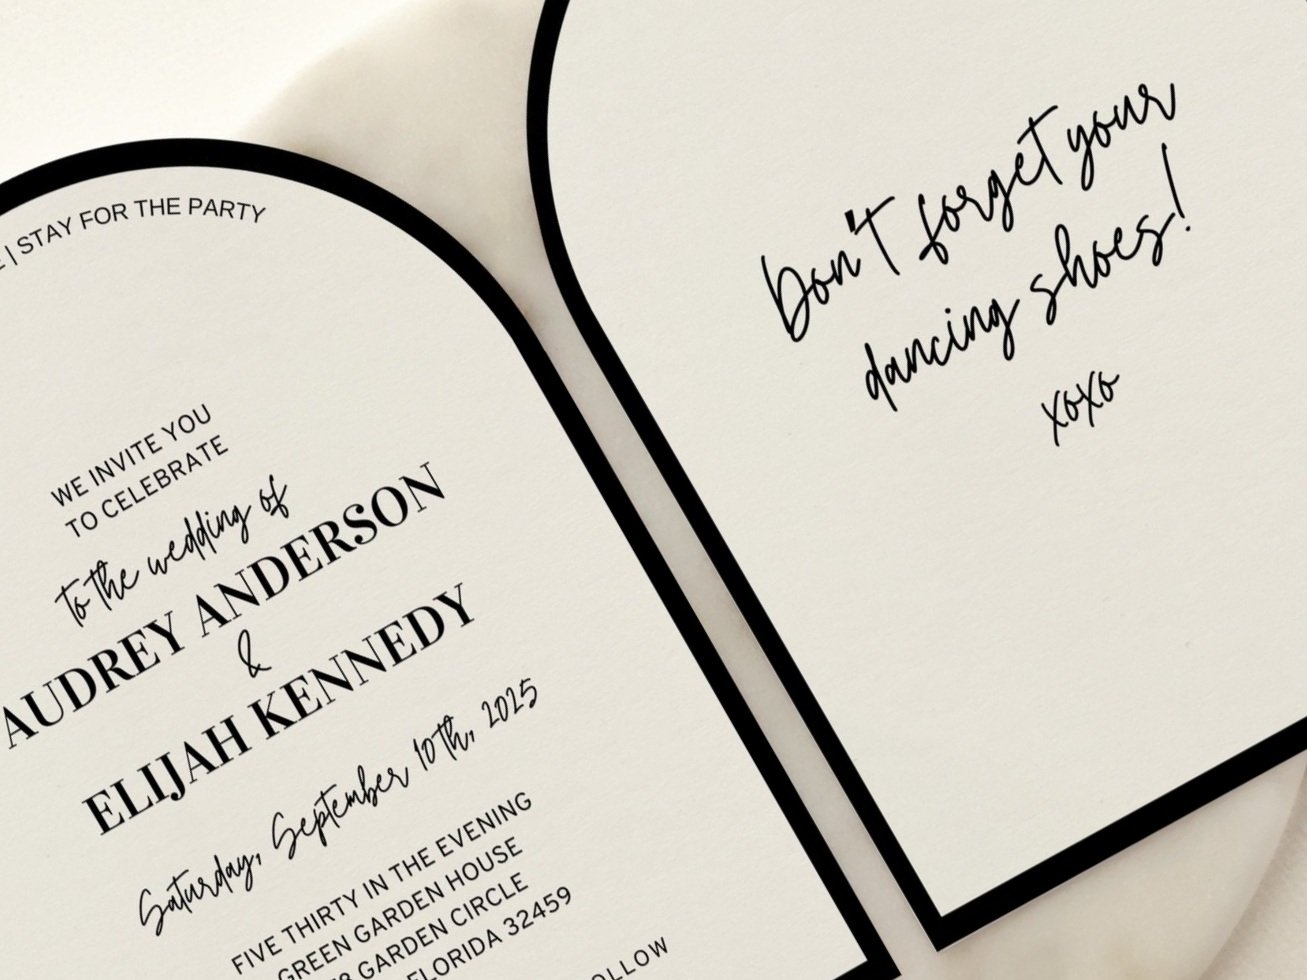 | STAY FOR THE PARTY
WE INVITE YOU
TO CELEBRATE
to the wedding of
AUDREY ANDERSON
&
ELIJAH KENNEDY
Saturday, September 10th, 2025
FIVE THIRTY IN THE EVENING
GREEN GARDEN HOUSE
GARDEN CIRCLE
FLORIDA 32459
Don't forget your
dancing shoes!
xoxo